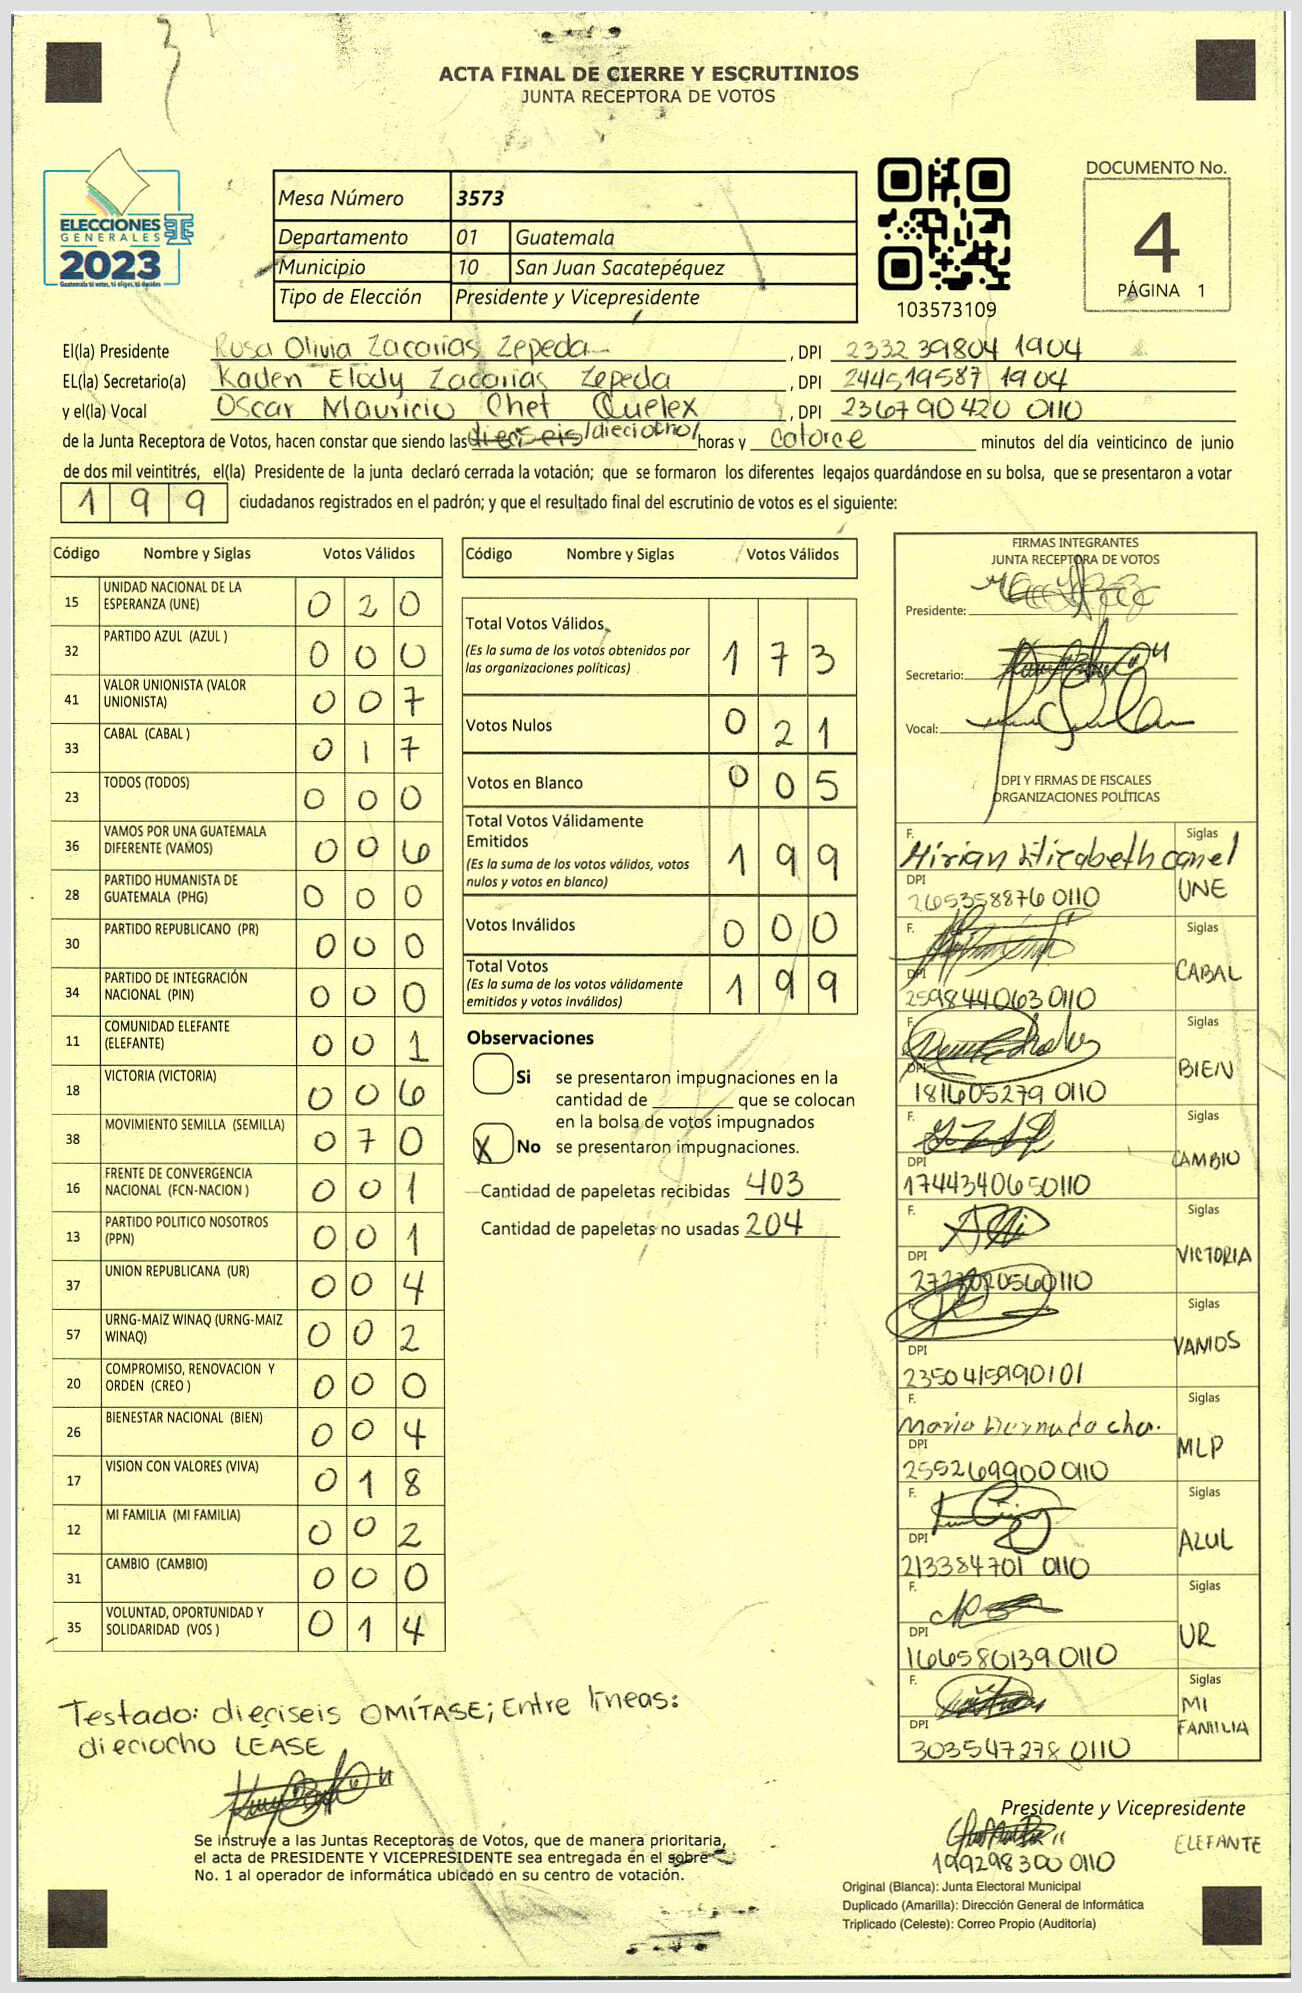 ACTA FINAL DE CIERRE Y ESCRUTINIOS
JUNTA RECEPTORA DE VOTOS
ELECCIONES
GENERALES
2023
Guatemala tú votas, tú eliges, tú decides
Mesa Número 3573
Departamento 01 Guatemala
Municipio 10 San Juan Sacatepéquez
Tipo de Elección Presidente y Vicepresidente
103573109
DOCUMENTO No.
4
PÁGINA 1
El(la) Presidente Rosa Olivia Zacarias Zepeda, DPI 2332 39804 1904
EL(la) Secretario(a) Karen Elody Zacarias Zepeda, DPI 244519587 1904
y el(la) Vocal Oscar Mauricio Chet Quelex, DPI 236790420 0110
de la Junta Receptora de Votos, hacen constar que siendo las dieciseis /dieciocho/ horas y catorce minutos del día veinticinco de junio
de dos mil veintitrés, el(la) Presidente de la junta declaró cerrada la votación; que se formaron los diferentes legajos guardándose en su bolsa, que se presentaron a votar
199 ciudadanos registrados en el padrón; y que el resultado final del escrutinio de votos es el siguiente:
Código Nombre y Siglas Votos Válidos
15 UNIDAD NACIONAL DE LA ESPERANZA (UNE) 0 2 0
32 PARTIDO AZUL (AZUL ) 0 0 0
41 VALOR UNIONISTA (VALOR UNIONISTA) 0 0 7
33 CABAL (CABAL ) 0 1 7
23 TODOS (TODOS) 0 0 0
36 VAMOS POR UNA GUATEMALA DIFERENTE (VAMOS) 0 0 6
28 PARTIDO HUMANISTA DE GUATEMALA (PHG) 0 0 0
30 PARTIDO REPUBLICANO (PR) 0 0 0
34 PARTIDO DE INTEGRACIÓN NACIONAL (PIN) 0 0 0
11 COMUNIDAD ELEFANTE (ELEFANTE) 0 0 1
18 VICTORIA (VICTORIA) 0 0 6
38 MOVIMIENTO SEMILLA (SEMILLA) 0 7 0
16 FRENTE DE CONVERGENCIA NACIONAL (FCN-NACION ) 0 0 1
13 PARTIDO POLITICO NOSOTROS (PPN) 0 0 1
37 UNION REPUBLICANA (UR) 0 0 4
57 URNG-MAIZ WINAQ (URNG-MAIZ WINAQ) 0 0 2
20 COMPROMISO, RENOVACION Y ORDEN (CREO ) 0 0 0
26 BIENESTAR NACIONAL (BIEN) 0 0 4
17 VISION CON VALORES (VIVA) 0 1 8
12 MI FAMILIA (MI FAMILIA) 0 0 2
31 CAMBIO (CAMBIO) 0 0 0
35 VOLUNTAD, OPORTUNIDAD Y SOLIDARIDAD (VOS ) 0 1 4
Código Nombre y Siglas Votos Válidos
Total Votos Válidos 1 7 3
(Es la suma de los votos obtenidos por
las organizaciones políticas)
Votos Nulos 0 2 1
Votos en Blanco 0 0 5
Total Votos Válidamente
Emitidos 1 9 9
(Es la suma de los votos válidos, votos
nulos y votos en blanco)
Votos Inválidos 0 0 0
Total Votos 1 9 9
(Es la suma de los votos válidamente
emitidos y votos inválidos)
Observaciones
Si se presentaron impugnaciones en la
cantidad de ________ que se colocan
en la bolsa de votos impugnados
X No se presentaron impugnaciones.
Cantidad de papeletas recibidas 403
Cantidad de papeletas no usadas 204
FIRMAS INTEGRANTES
JUNTA RECEPTORA DE VOTOS
Presidente:
Secretario:
Vocal:
DPI Y FIRMAS DE FISCALES
ORGANIZACIONES POLÍTICAS
F. Mirian Elizabeth canel Siglas
DPI 265358876 0110 UNE
F. Siglas
DPI 259844063 0110 CABAL
F. Siglas
DPI 181605279 0110 BIEN
F. Siglas
DPI 174434065 0110 CAMBIO
F. Siglas
DPI 0110 VICTORIA
F. Siglas
DPI 235041599 0101 VAMOS
F. Maria Siglas
DPI 255269900 0110 MLP
F. Siglas
DPI 213384701 0110 AZUL
F. Siglas
DPI 166580139 0110 UR
F. Siglas
DPI 303547278 0110 MI FAMILIA
Testado: dieciseis OMÍTASE; Entre líneas:
dieciocho LEASE
Se instruye a las Juntas Receptoras de Votos, que de manera prioritaria,
el acta de PRESIDENTE Y VICEPRESIDENTE sea entregada en el sobre
No. 1 al operador de informática ubicado en su centro de votación.
Presidente y Vicepresidente
ELEFANTE
199298300 0110
Original (Blanca): Junta Electoral Municipal
Duplicado (Amarilla): Dirección General de Informática
Triplicado (Celeste): Correo Propio (Auditoría)